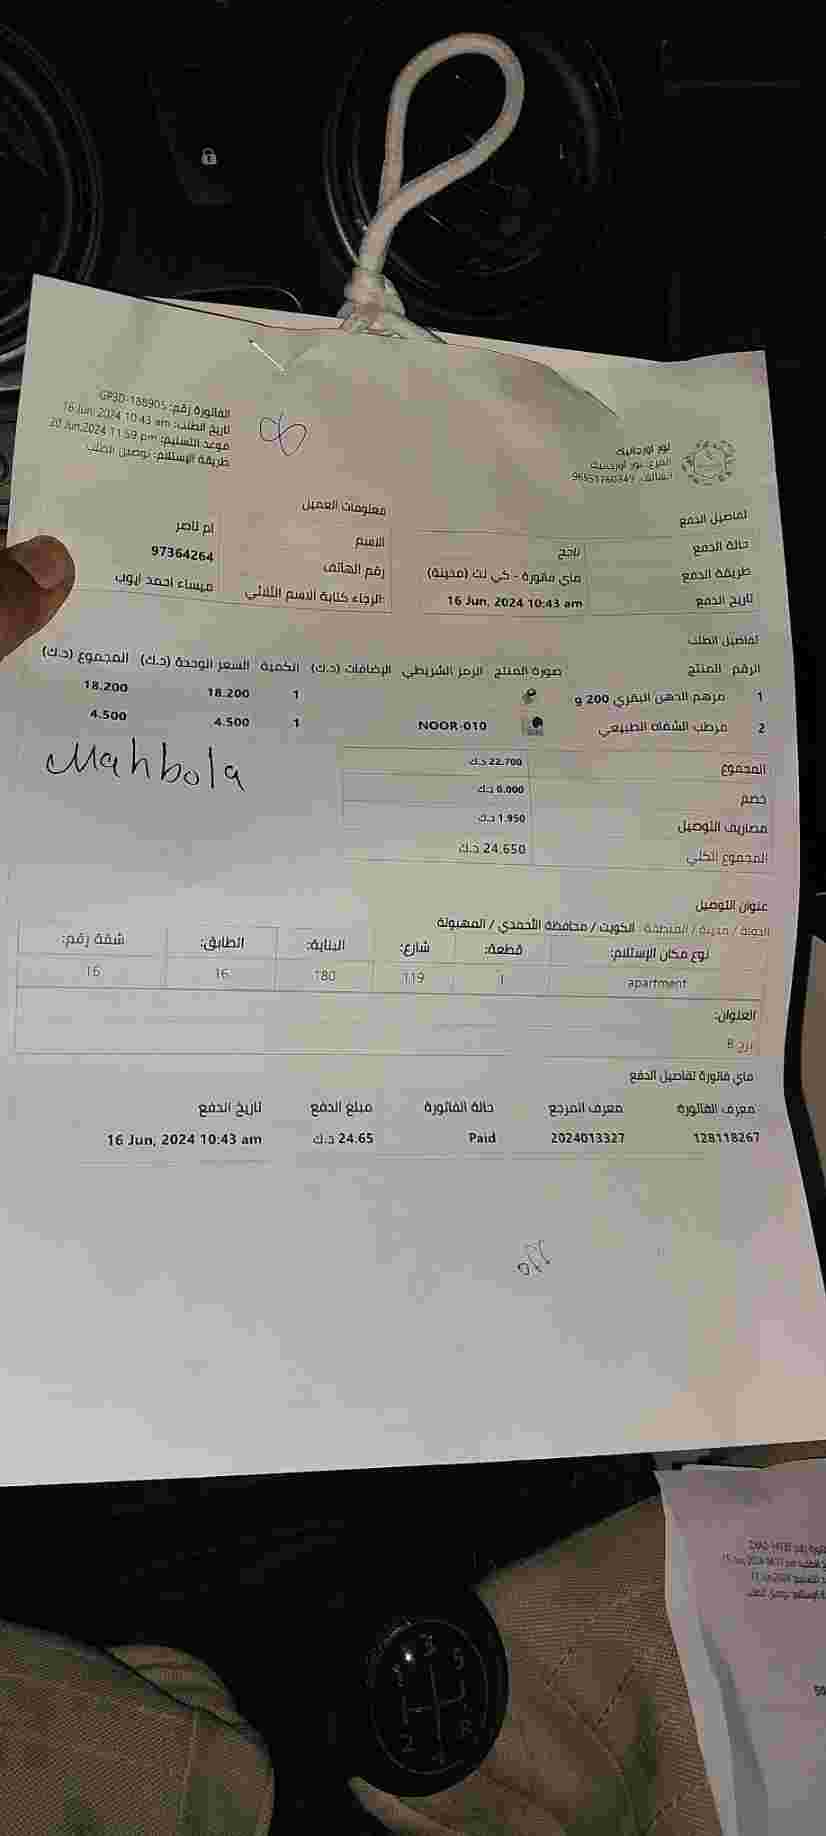 نور اورجانيك
الفرع: نور اورجانيك
الهاتف: 96551760349
الفاتورة رقم: GP3D-188905
تاريخ الطلب: 16 Jun, 2024 10:43 am
موعد التسليم: 20 Jun,2024 11:59 pm
طريقة الإستلام: توصيل الطلب
8
تفاصيل الدفع
حالة الدفع ناجح
طريقة الدفع ماي فاتورة - كي نت (مدينة)
تاريخ الدفع 16 Jun, 2024 10:43 am
معلومات العميل
الاسم ام ناصر
رقم الهاتف 97364264
الرجاء كتابة الاسم الثلاثي: ميساء احمد ايوب
تفاصيل الطلب
الرقم المنتج صورة المنتج الرمز الشريطي الإضافات (د.ك) الكمية السعر الوحدة (د.ك) المجموع (د.ك)
1 مرهم الدهن البقري 200 و 1 18.200 18.200
2 مرطب الشفاه الطبيعي NOOR-010 1 4.500 4.500
Mahbola
المجموع 22.700 د.ك
خصم 0.000 د.ك
مصاريف التوصيل 1.950 د.ك
المجموع الكلي 24.650 د.ك
عنوان التوصيل
الدولة / مدينة / المنطقة : الكويت / محافظة الأحمدي / المهبولة
نوع مكان الإستلام: قطعة: شارع: البناية: الطابق: شقة رقم:
apartment 1 119 180 16 16
العنوان:
برج B
ماي فاتورة تفاصيل الدفع
معرف الفاتورة معرف المرجع حالة الفاتورة مبلغ الدفع تاريخ الدفع
128118267 2024013327 Paid 24.65 د.ك 16 Jun, 2024 10:43 am
1 3 5
2 4 R
50